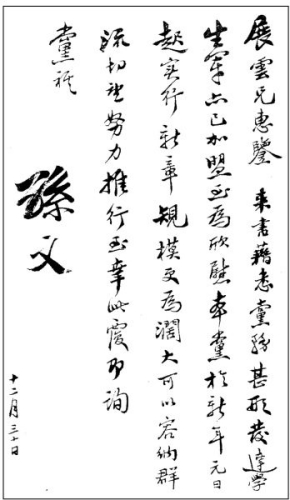 展雲兄惠鑒 來書藉悉黨務甚形發達學
生軍亦已加盟至為欣慰本黨於新年元日
起實行新章規模更為濶大可以容納群
流切望努力推行至幸此覆即詢
黨祺
孫文
十二月三十日